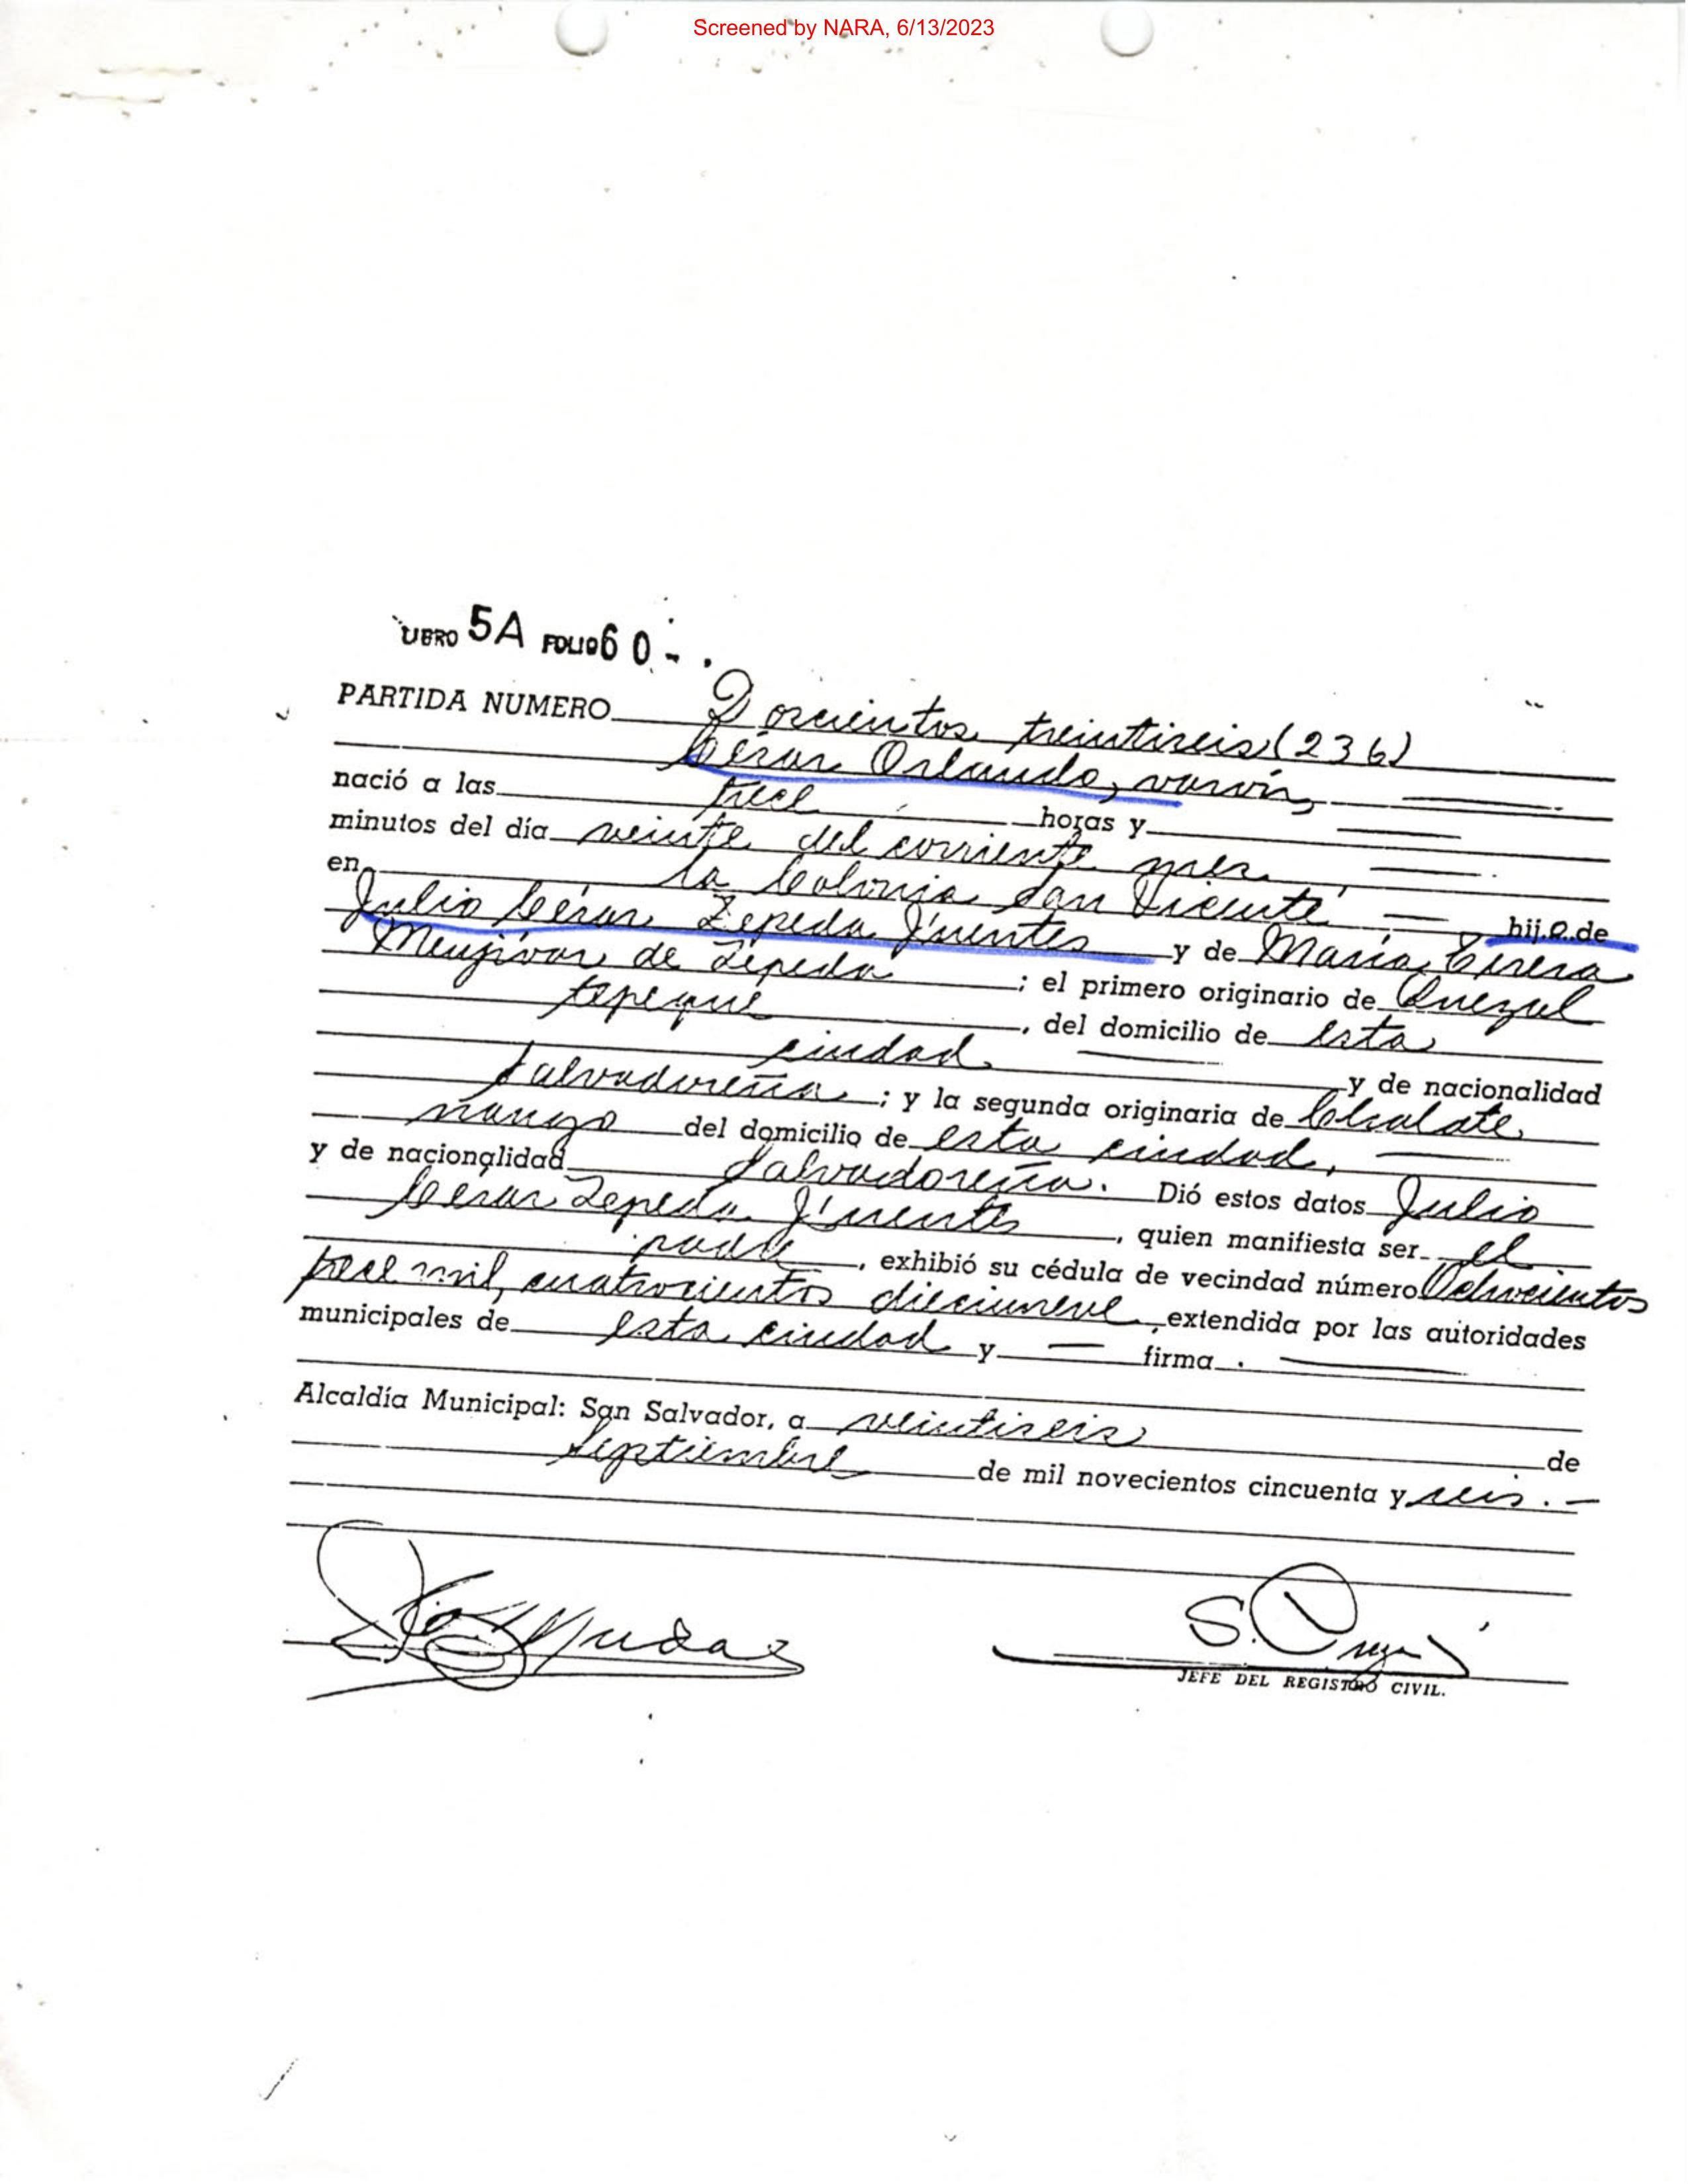 Screened by NARA, 6/13/2023
LIBRO 5A FOLIO 60-.
PARTIDA NUMERO Doscientos treintiseis (236)
César Orlando, varón,
nació a las trece horas y
minutos del día veinte del corriente mes
en la Colonia San Vicente hijo de
Julio César Zepeda Fuentes y de María Teresa
Menjívar de Zepeda ; el primero originario de Quezal
tepeque , del domicilio de esta
ciudad y de nacionalidad
Salvadoreña ; y la segunda originaria de Chalate
nango del domicilio de esta ciudad,
y de nacionalidad Salvadoreña. Dió estos datos Julio
César Zepeda Fuentes , quien manifiesta ser el
padre , exhibió su cédula de vecindad número Ochocientos
trece mil, cuatrocientos diecinueve , extendida por las autoridades
municipales de esta ciudad y — firma .
Alcaldía Municipal: San Salvador, a veintiseis de
Septiembre de mil novecientos cincuenta y seis. —
JEFE DEL REGISTRO CIVIL.